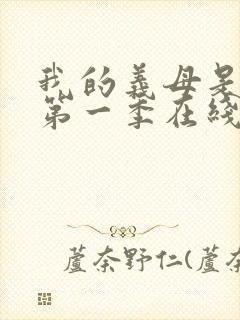 我的義母是
第一季在綫
蘆奈野仁(蘆奈